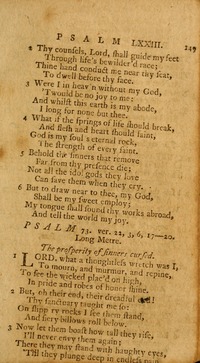 PSALM LXXIII. 249
2 Thy counsels, Lord, shall guide my feet
Through life's bewilder'd race;
Thine hand conduct me near thy seat,
To dwell before thy face.
3 Were I in heav'n without my God,
'Twould be no joy to me:
And whilst this earth is my abode,
I long for none but thee.
4 What if the springs of life should break,
And flesh and heart should faint,
God is my soul's eternal rock,
The strength of every saint.
5 Behold the sinners that remove
Far from thy presence die;
Not all the idol gods they love
Can save them when they cry.
6 But to draw near to thee, my God,
Shall be my sweet employ;
My tongue shall sound thy works abroad,
And tell the world my joy.
PSALM 73. ver. 22, 3, 6, 17—20.
Long Metre.
The prosperity of sinners curs'd.
1 LORD, what a thoughtless wretch was I,
To mourn, and murmur, and repine,
To see the wicked plac'd on high,
In pride and robes of honor shine.
2 But, oh their end, their dreadful end!
Thy sanctuary taught me so:
On slipp'ry rocks I see them stand,
And fiery billows roll below.
3 Now let them boast how tall they rise,
I'll never envy them again;
There they may stand with haughty eyes,
'Till they plunge deep in endless